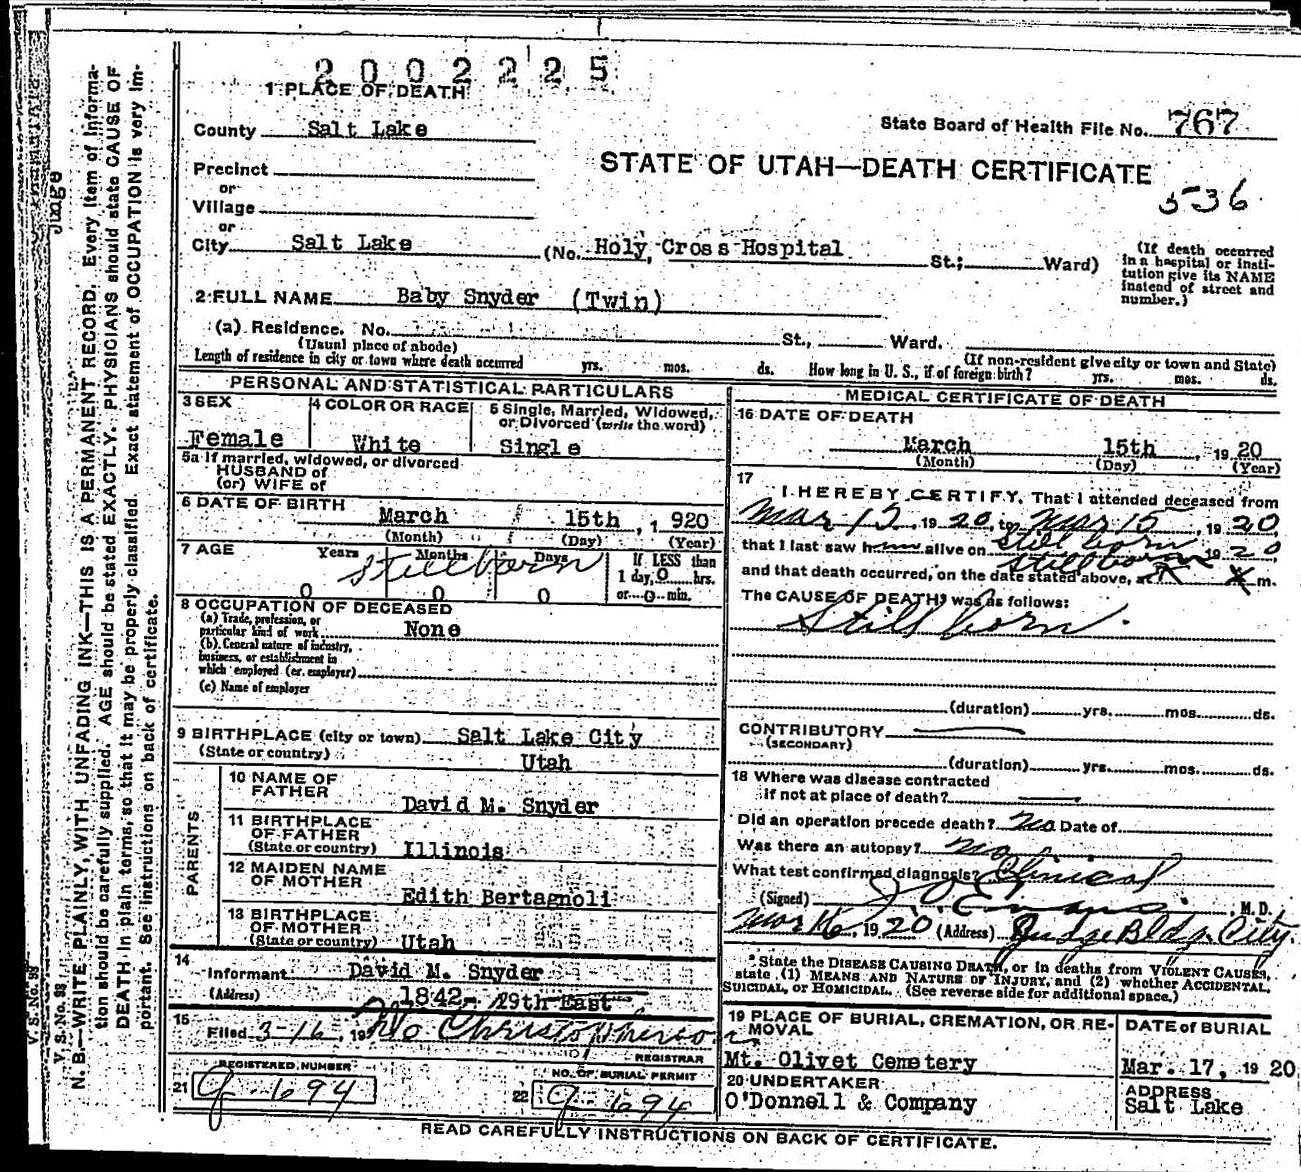 2002225
1 PLACE OF DEATH
County Salt Lake
State Board of Health File No. 767
Precinct
or
Village
or
STATE OF UTAH—DEATH CERTIFICATE
536
City Salt Lake (No. Holy Cross Hospital St.; Ward)
(If death occurred in a hospital or institution give its NAME instead of street and number.)
2 FULL NAME Baby Snyder (Twin)
(a) Residence. No. St., Ward.
(Usual place of abode) (If non-resident give city or town and State)
Length of residence in city or town where death occurred yrs. mos. ds. How long in U. S., if of foreign birth? yrs. mos. ds.
PERSONAL AND STATISTICAL PARTICULARS
3 SEX 4 COLOR OR RACE 5 Single, Married, Widowed, or Divorced (write the word)
Female White Single
5a If married, widowed, or divorced
HUSBAND of
(or) WIFE of
6 DATE OF BIRTH
March 15th, 1920
(Month) (Day) (Year)
7 AGE Years Months Days If LESS than
Stillborn 1 day, 0 hrs.
0 0 0 or 0 min.
8 OCCUPATION OF DECEASED
(a) Trade, profession, or
particular kind of work None
(b) General nature of industry,
business, or establishment in
which employed (or employer)
(c) Name of employer
9 BIRTHPLACE (city or town) Salt Lake City
(State or country) Utah
PARENTS
10 NAME OF FATHER David M. Snyder
11 BIRTHPLACE OF FATHER
(State or country) Illinois
12 MAIDEN NAME OF MOTHER Edith Bertagnoli
13 BIRTHPLACE OF MOTHER
(State or country) Utah
14
Informant David M. Snyder
(Address) 1842- 29th East
15
Filed 3-16, 19
REGISTRAR
REGISTERED NUMBER NO. OF BURIAL PERMIT
21 G-694 22 G-694
MEDICAL CERTIFICATE OF DEATH
16 DATE OF DEATH
March 15th, 1920
(Month) (Day) (Year)
17
I HEREBY CERTIFY, That I attended deceased from
Mar 15, 1920, to Mar 15, 1920,
that I last saw h alive on Stillborn 1920
Stillborn
and that death occurred, on the date stated above, at m.
The CAUSE OF DEATH* was as follows:
Stillborn.
(duration) yrs. mos. ds.
CONTRIBUTORY
(SECONDARY)
(duration) yrs. mos. ds.
18 Where was disease contracted
if not at place of death?
Did an operation precede death? No Date of
Was there an autopsy? No
What test confirmed diagnosis? Clinical
(Signed) J. O. Evans. M. D.
Mar 16, 1920 (Address) Judge Bldg. City.
*State the DISEASE CAUSING DEATH, or in deaths from VIOLENT CAUSES,
state (1) MEANS AND NATURE OF INJURY, and (2) whether ACCIDENTAL,
SUICIDAL, or HOMICIDAL. (See reverse side for additional space.)
19 PLACE OF BURIAL, CREMATION, OR REMOVAL DATE of BURIAL
Mt. Olivet Cemetery Mar. 17, 1920
20 UNDERTAKER ADDRESS
O'Donnell & Company Salt Lake
READ CAREFULLY INSTRUCTIONS ON BACK OF CERTIFICATE.
Judge
N. B.—WRITE PLAINLY, WITH UNFADING INK—THIS IS A PERMANENT RECORD. Every item of information should be carefully supplied. AGE should be stated EXACTLY. PHYSICIANS should state CAUSE OF DEATH in plain terms, so that it may be properly classified. Exact statement of OCCUPATION is very important. See instructions on back of certificate.
V. S. No. 98
V. S. No. 98